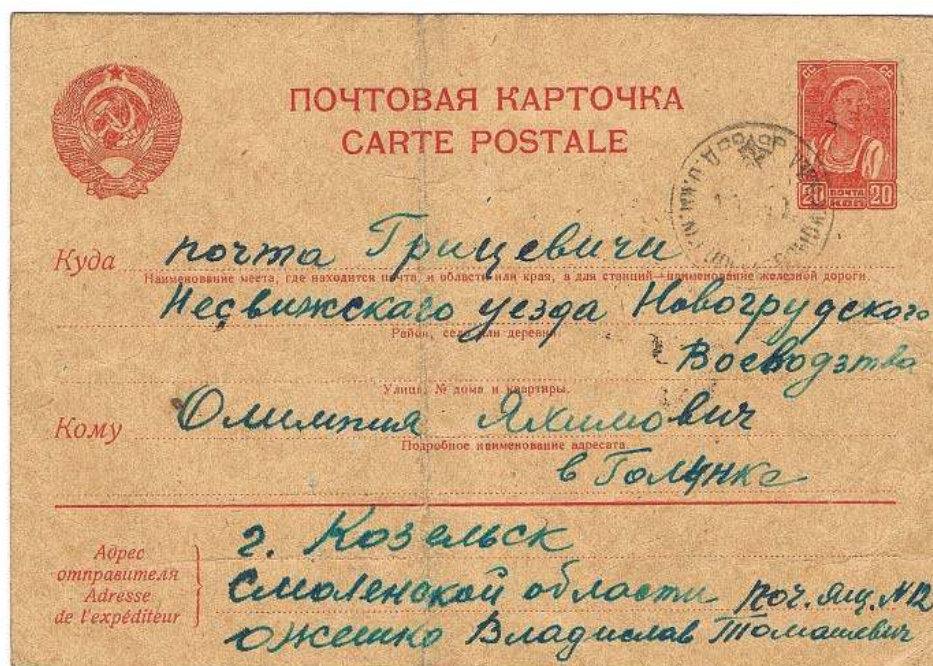 ПОЧТОВАЯ КАРТОЧКА
CARTE POSTALE
СС СР
20 ПОЧТА КОП 20
Куда почта Грицевичи
Наименование места, где находится почта, и области или края, а для станций—наименование железной дороги.
Несвижскаго уезда Новогрудского
Район, село или деревня.
Воеводзтва
Улица, № дома и квартиры.
Кому Олимпия Яхимович
Подробное наименование адресата.
в Голынке
г. Козельск
Адрес отправителя
Adresse de l'expéditeur
Смоленской области поч. ящ. №12
Ожешко Владислав Томашевич